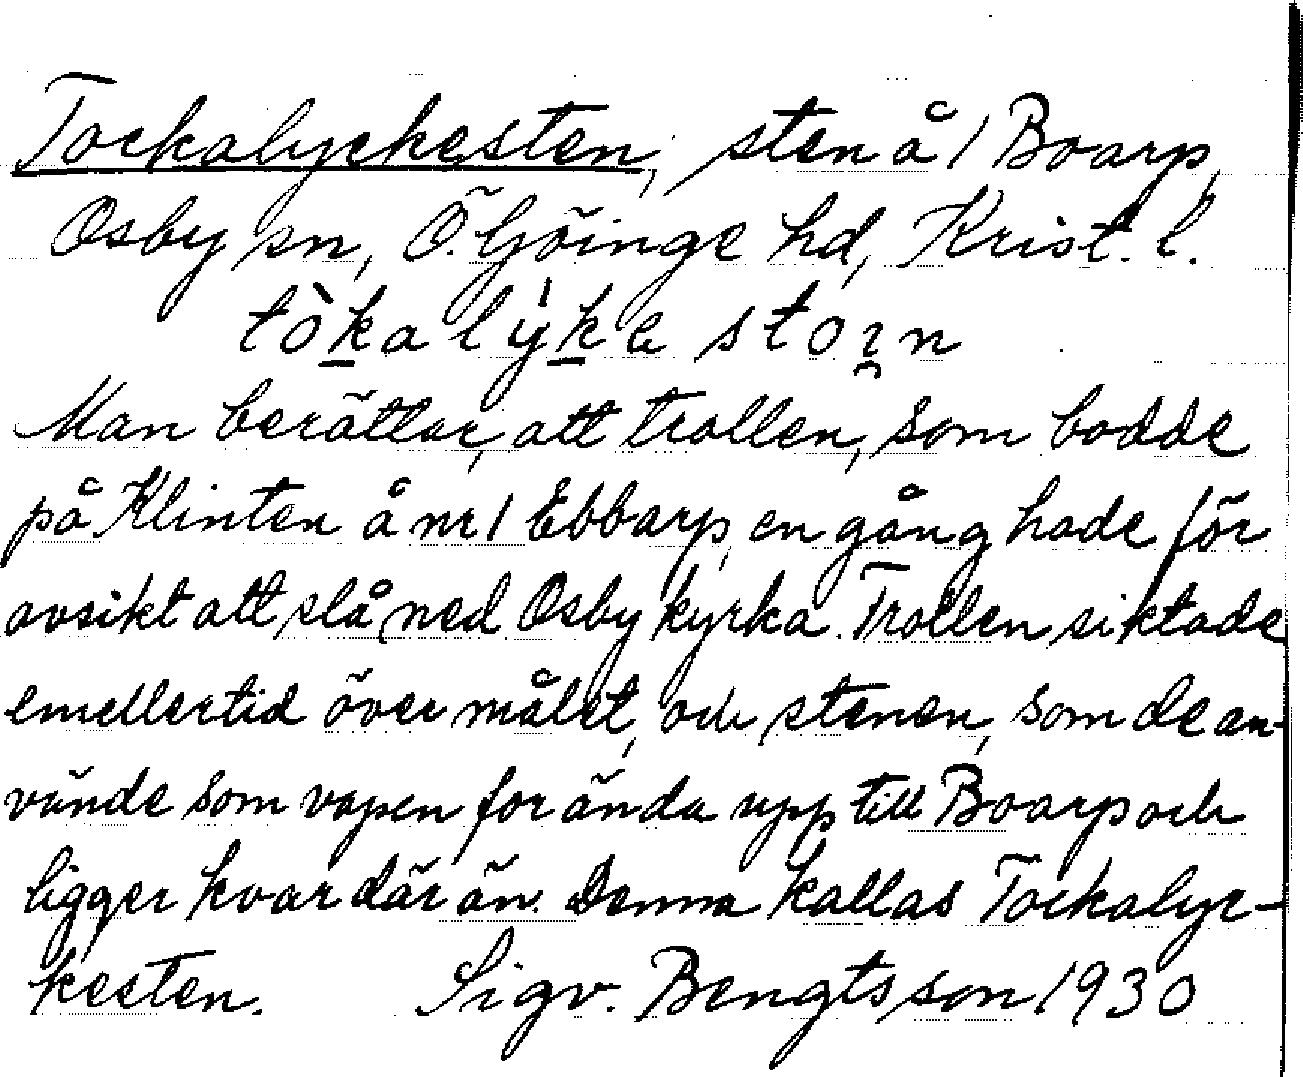 Tockalyckesten, sten å 1 Boarp,
Osby sn, Ö. Göinge hd, Krist. l.
Man berättar, att trollen, som bodde
på Klinten å nr 1 Ebbarp, en gång hade för
avsikt att slå ned Osby kyrka. Trollen siktade
emellertid över målet, och stenen, som de an-
vände som vapen for ända upp till Boarp och
ligger kvar där än. Denna kallas Tockalyc-
kesten. Sigv. Bengtsson 1930